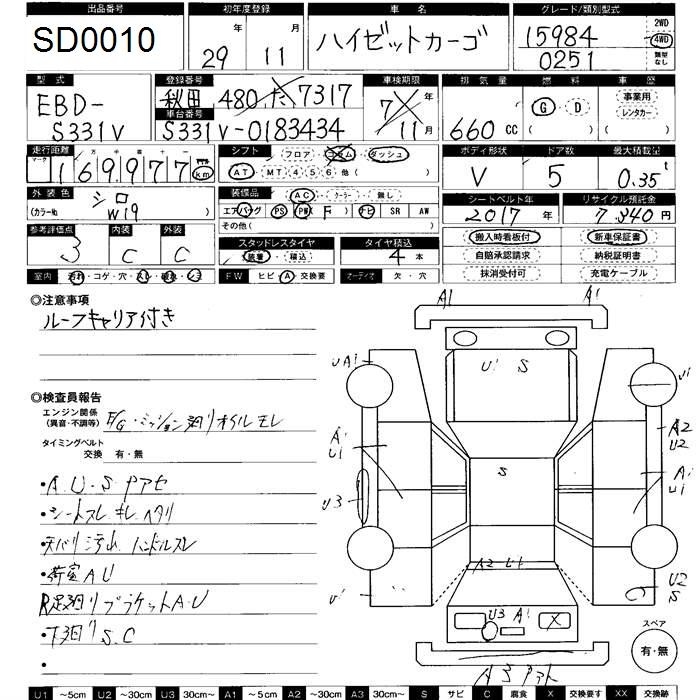 出品番号 初年度登録 車名 グレード/類別型式
SD0010 29年 11月 ハイゼットカーゴ 15984 0251 2WD 4WD 類型なし
型式 登録番号 車検期限 排気量 燃料 車歴
EBD-S331V 秋田 480 た 7317 7年 11月 660cc G・D 事業用 レンタカー ( )
車台番号
S331V-0183434
走行距離 シフト ボディ形状 ドア数 最大積載量
マーク 十 万 千 百 十 一
169977 km フロア・コラム・ダッシュ V 5 0.35t
AT・MT 4 5 6 他( )
外装色 装備品 シートベルト年 リサイクル預託金
シロ AC・クーラー・無し 2017年 7,340円
(カラーNo W19 エアバッグ PS PW F ナビ SR AW
その他( )
参考評価点 内装 外装 スタッドレスタイヤ タイヤ積込 搬入時看板付 新車保証書
3 C C 装着・積込 4本 自賠承認請求 納税証明書
抹消受付可 充電ケーブル
室内 汚れ・コゲ・穴・スレ・破れ・シミ FW ヒビ・A・交換要 オーディオ 欠・穴
◎注意事項
ルーフキャリア付き
◎検査員報告
エンジン関係
(異音・不調等) E/G・ミッション廻りオイルモレ
タイミングベルト
交換 有・無
・A.U・Sアセ
・シートスレ キレ ヘタリ
・天バリ汚れ ハンドルスレ
・荷室AU
R足廻りブラケットA・U
・下廻りS.C
・
A1 A1
UA1 U1 S U1
A1 U1 A2 U2
S A1 U1
U3
A2
U1 U2 S
U3 A1 X
スペア
有・無
U1 ~5cm U2 ~30cm U3 30cm~ A1 ~5cm A2 ~30cm A3 30cm~ S サビ C 腐食 X 交換要す XX 交換跡